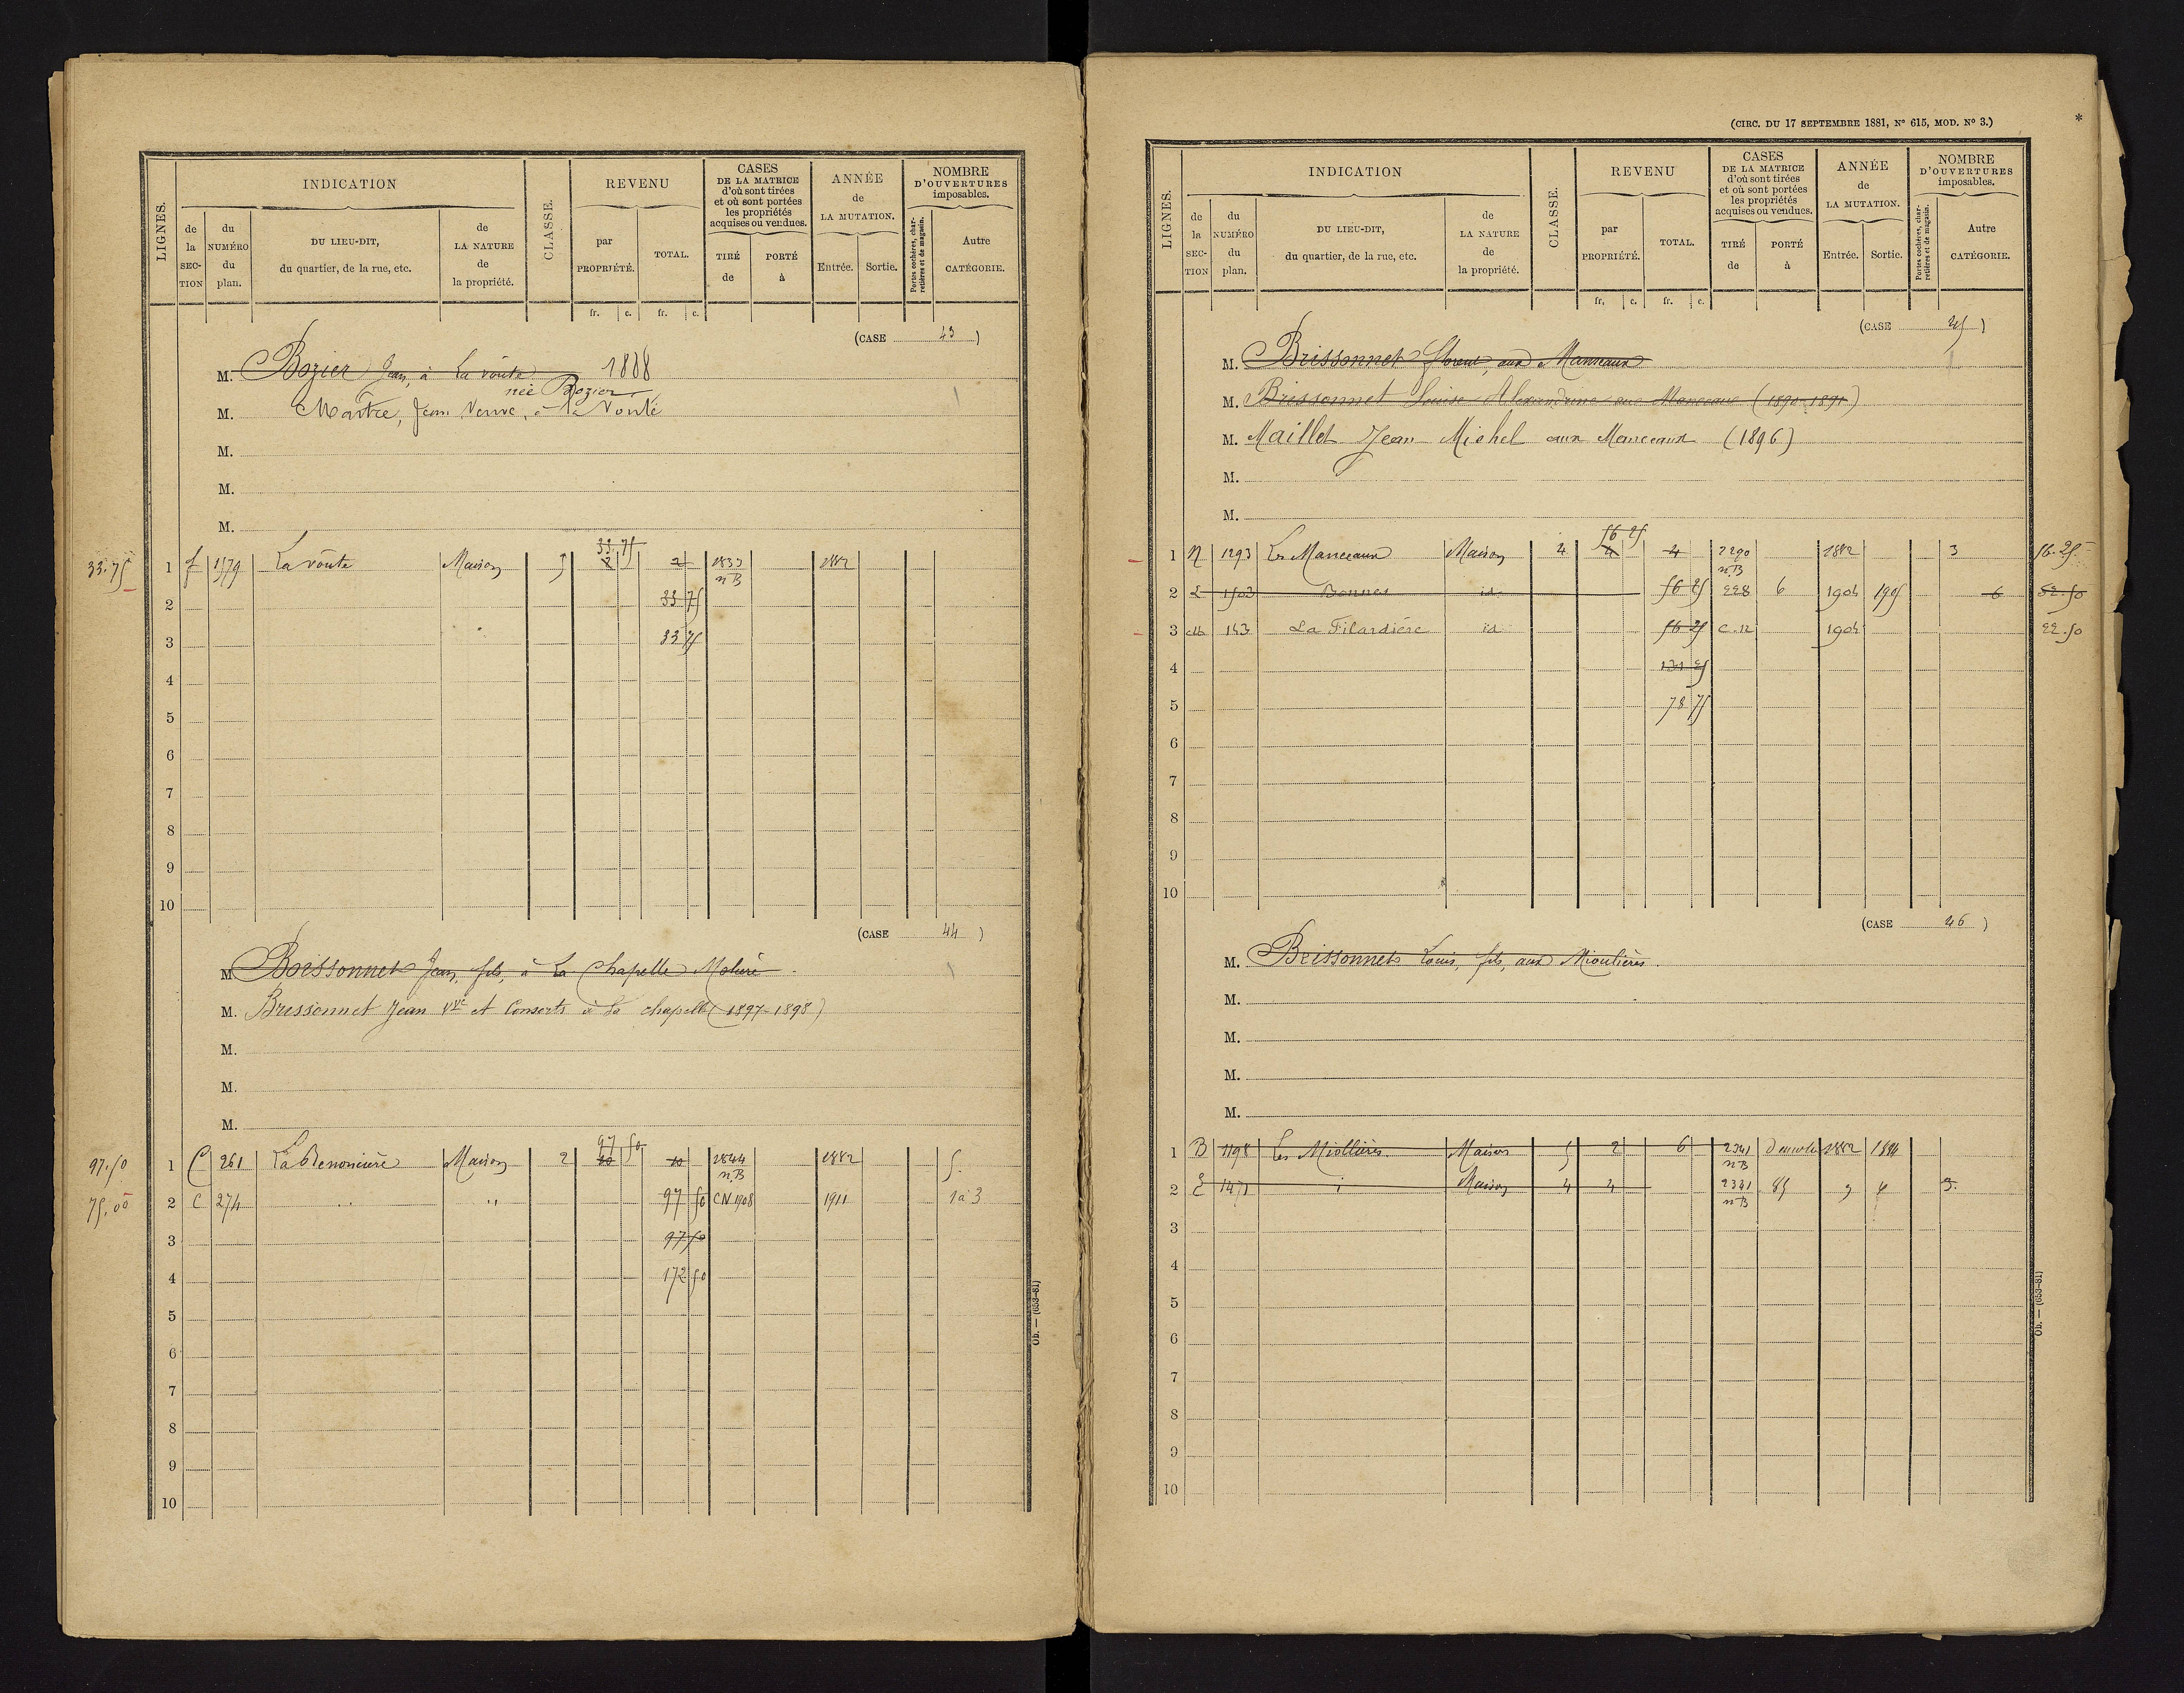 LIGNES.
INDICATION
de la SECTION
du NUMÉRO du plan.
DU LIEU-DIT, du quartier, de la rue, etc.
de LA NATURE de la propriété.
CLASSE.
REVENU
par PROPRIÉTÉ.
TOTAL.
CASES DE LA MATRICE d'où sont tirées et où sont portées les propriétés acquises ou vendues.
TIRÉ de
PORTÉ à
ANNÉE de LA MUTATION.
Entrée. Sortie.
NOMBRE D'OUVERTURES imposables.
Portes cochères, charretières et de magasin.
Autre CATÉGORIE.
fr. c. fr. c.
(CASE 43)
M. Bozier Jean, à La voûte 1888
née Bozier
M. Martre, Jean Veuve, à la Voûte
M.
M.
M.
33.75 1 f 1579 La voûte Maison 5 2 33 75 2 1833 n B 1882
2 33 75
3 33 75
4
5
6
7
8
9
10
(CASE 44)
M. Brissonnet Jean, fils, à La Chapelle Moliere
M. Brissonnet Jean Vve et Consorts à la chapelle (1897-1898)
M.
M.
M.
97.50 1 C 261 Maison 2 20 97 50 20 1844 n.B 1882 5.
75.00 2 C 274 " " 97 50 CN 1908 1911 1 à 3
3 97 50
4 172 50
5
6
7
8
9
10
Ob. — (653-81)
(CIRC. DU 17 SEPTEMBRE 1881, N° 615, MOD. N° 3.)
*
LIGNES.
INDICATION
de la SECTION
du NUMÉRO du plan.
DU LIEU-DIT, du quartier, de la rue, etc.
de LA NATURE de la propriété.
CLASSE.
REVENU
par PROPRIÉTÉ.
TOTAL.
CASES DE LA MATRICE d'où sont tirées et où sont portées les propriétés acquises ou vendues.
TIRÉ de
PORTÉ à
ANNÉE de LA MUTATION.
Entrée. Sortie.
NOMBRE D'OUVERTURES imposables.
Portes cochères, charretières et de magasin.
Autre CATÉGORIE.
fr. c. fr. c.
(CASE 45)
M. Brissonnet Florent, aux Manceaux
M. Brissonnet Louise Alexandrine aux Manceaux (1890-1891)
M. Maillet Jean Michel aux Manceaux (1896)
M.
M.
1 1293 Les Manceaux Maison 4 4 56 25 4 2290 n.B 1882 3 56.25
2 E 1503 Bonnes id 56 25 228 6 1904 1905 6 52.50
3 143 La Filardière id 56 25 C.12 1904 22.50
4 131 25
5 78 75
6
7
8
9
10
(CASE 46)
M. Brissonnet Louis, fils, aux Mioulières.
M.
M.
M.
M.
1 B 1198 Les Miollières Maison 5 2 6 2341 n B 1882 1884
2 E 1471 i Maison 4 4 2341 n B 85 3.
3
4
5
6
7
8
9
10
Ob. — (653-81)